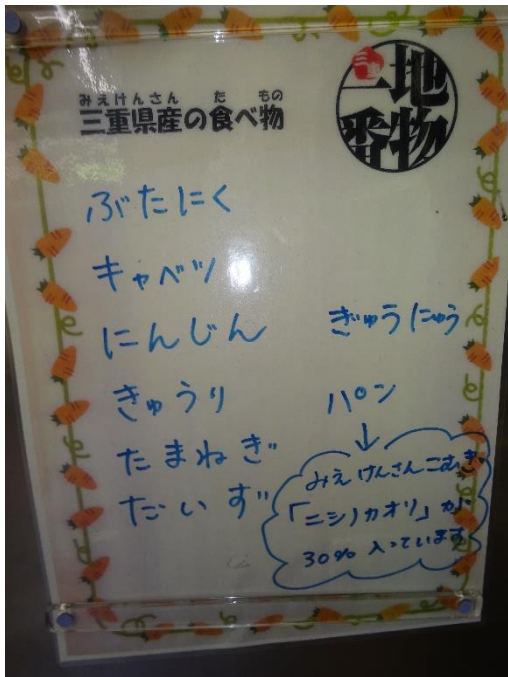 みえけんさん　た　もの
三重県産の食べ物
三重
地物
一番
ぶたにく
キャベツ
にんじん
きゅうり
たまねぎ
だいず
ぎゅうにゅう
パン
↓
みえけんさんこむぎ
「ニシノカオリ」が
30% 入っています